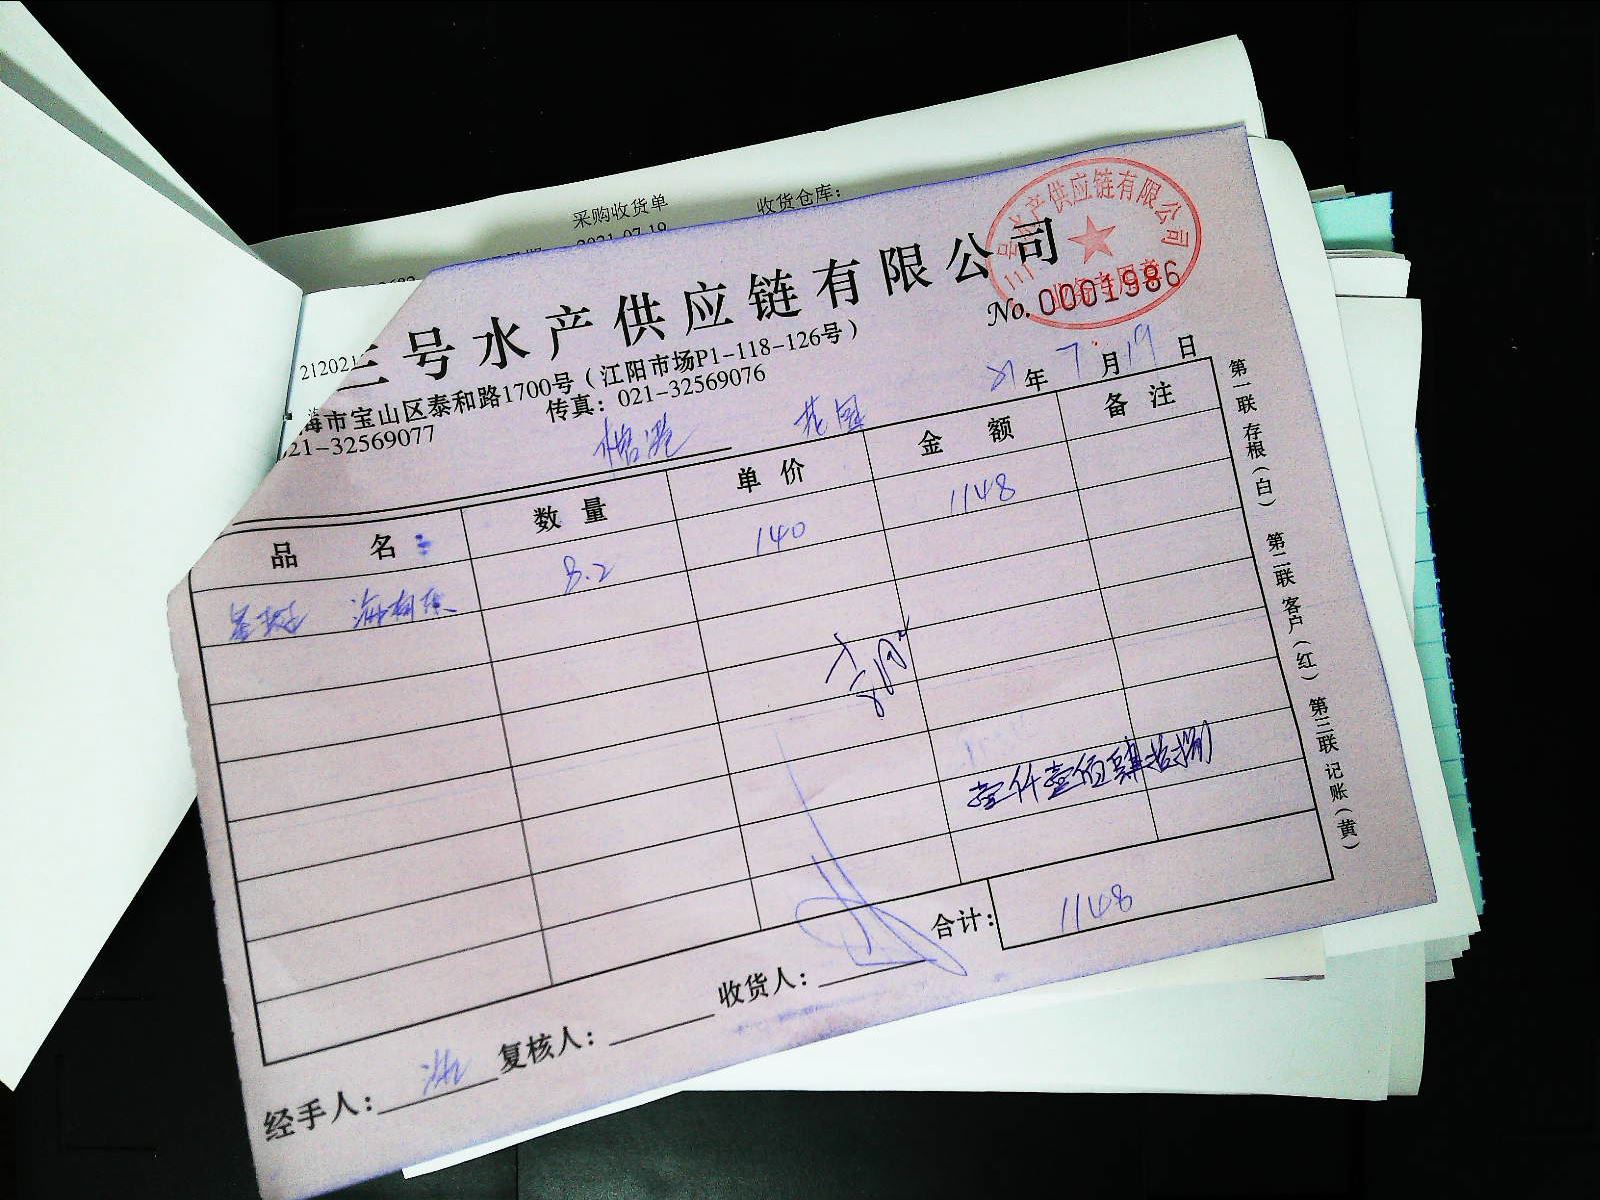 采购收货单 收货仓库:
2021-07-19
212021
三号水产供应链有限公司
号水产供应链有限公司
No. 0001986
海市宝山区泰和路1700号(江阳市场P1-118-126号)
021-32569077 传真: 021-32569076
花园
21年 7月 19日
品名 数量 单价 金额 备注
8.2 140 1148
壹仟壹佰肆拾捌
合计: 1148
经手人: 复核人: 收货人:
第一联 存根(白) 第二联 客户(红) 第三联 记账(黄)